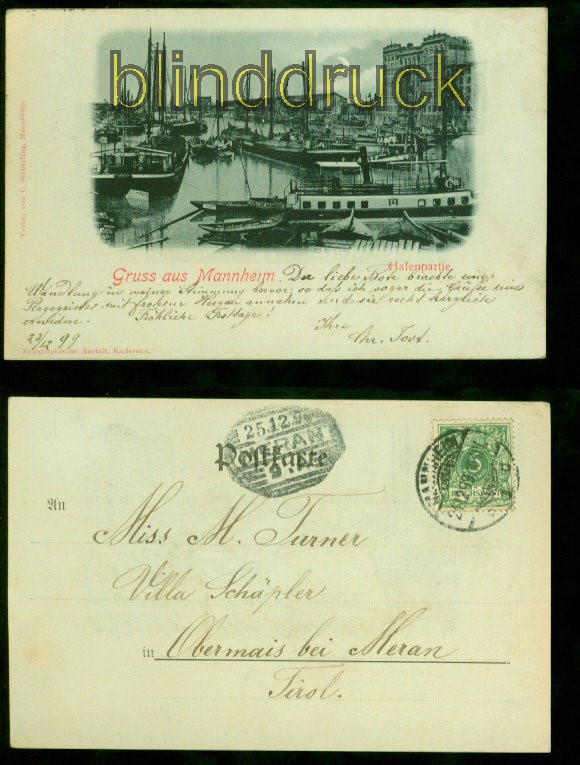 blinddruck
Verlag von C. Sieberling, Mannheim.
Hafenpartie.
Gruss aus Mannheim. Die liebe Note brachte eine
Wandlung in meiner Stimmung hervor; so daß ich sogar die Grüße eines
Plagegeistes mit frohem Herzen annehme und sie recht herzlich
erwidere. Fröhliche Festtage! Ihre
23/12 99 Chr. Tost.
Xylographische Anstalt, Karlsruhe.
25.12.9
MERAN
Postkarte
MANNHEIM
5
An
Miss M. Turner
Villa Schäpler
in Obermais bei Meran
Tirol.